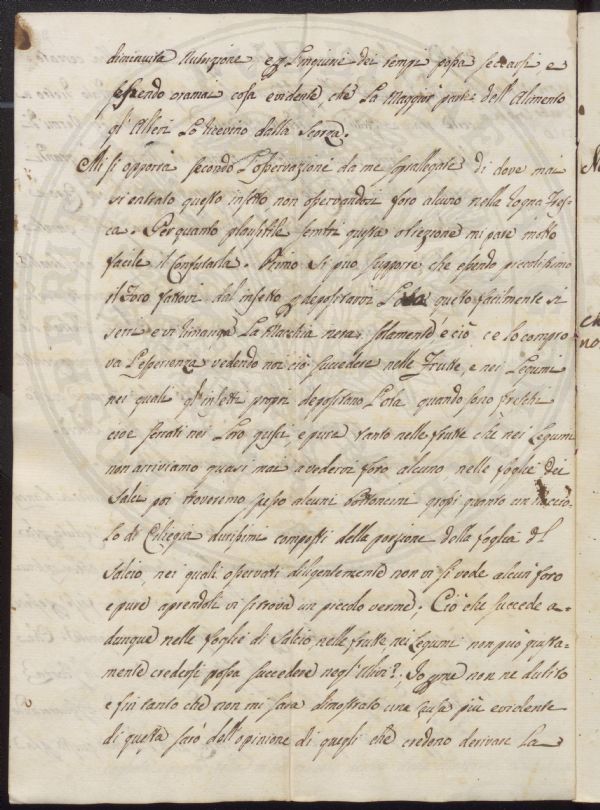 diminuita Nutrizione e p l'ingiurie dei tempi possa seccarsi, e
essendo oramai cosa evidente, che La Maggior parte dell'Alimento
gl'Alberi Lo ricevino dalla Scorza.
Mi si opporrà secondo L'osservazione da me soprallegata di dove mai
vi entrato questo insetto non osservandosi foro alcuno nella Rogna Fres-
ca. Per quanto plausibile sembri questa obiezione mi pare molto
facile il Confutarla. Primo si può supporre che essendo piccolissimo
il Foro fattovi dal insetto p depositarvi L'ova questo facilmente si
serri e vi rimanga La Macchia nera solamente e ciò ce lo compro
va L'esperienza vedendo noi ciò succedere nelle Frutte, e nei Legumi
nei quali gl'insetti proprj depositano L'ova quando sono freschi
cioè serrati nei Loro gusci, e pure tanto nelle frutte che nei Legumi
non arriviamo quasi mai a vedervi foro alcuno nelle foglie dei
Salci poi troveremo spesso alcuni bottoncini grossi quanto un nocciò-
lo di Ciliegia durissimi composti della porzione della foglia del
Salcio, nei quali osservati diligentemente non vi si vede alcun foro
e pure aprendoli vi si trova un piccolo verme. Ciò che succede a-
dunque nelle foglie di Salcio, nelle frutte nei Legumi non può giusta-
mente credersi possa succedere negl'Ulivi? Io p me non ne dubito
e fin tanto che non mi sarà dimostrato una causa più evidente
di questa sarò dell'opinione di quegli che credono derivare La